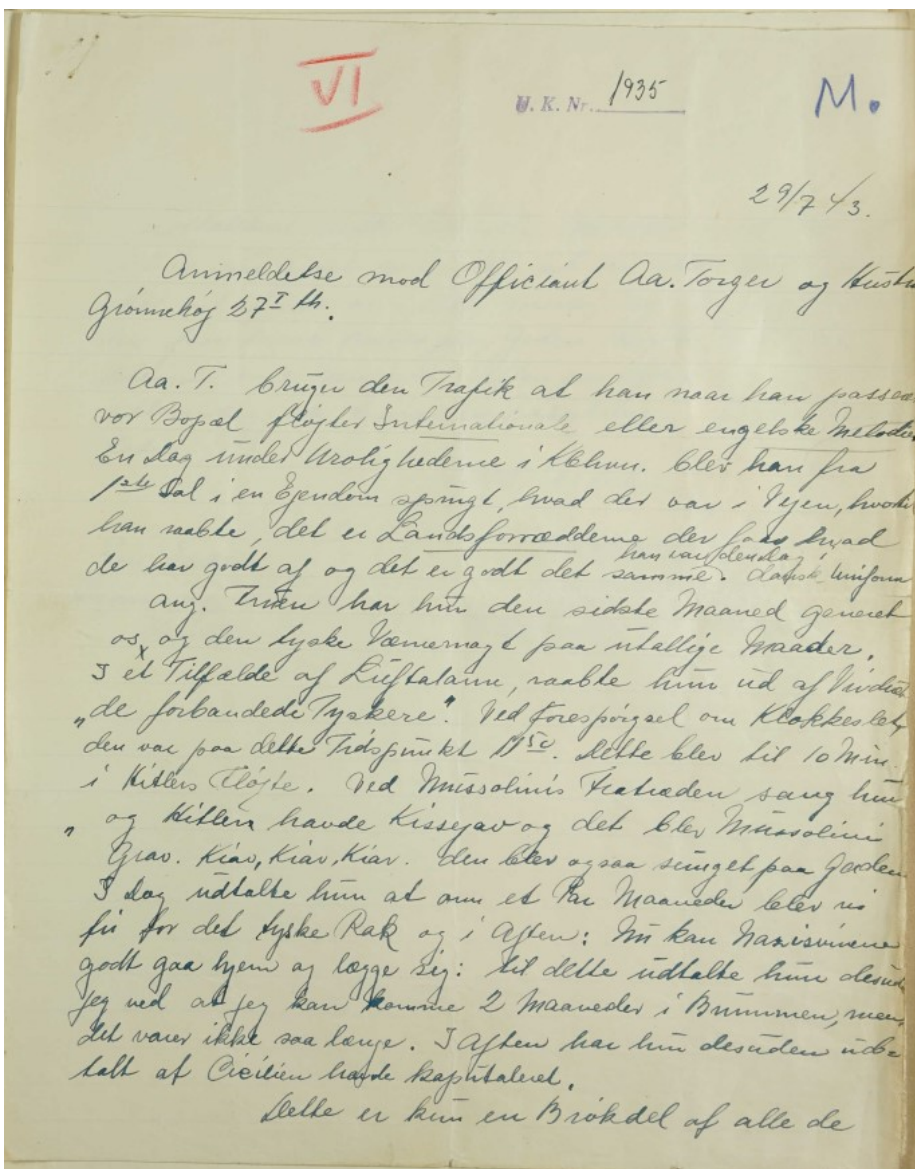 VI
U. K. Nr. 1935
M.
29/7 43.
Anmeldelse mod Officiant Aa. Torger og Hustru
Grønnehøj 27 I th.
Aa. T. bruger den Trafik at han naar han passer
vor Bopæl fløjter Internationale eller engelske Melodier
En Dag under Urolighederne i Kbhvn. blev han fra
1ste Sal i en Ejendom spurgt, hvad der var i Vejen, hvortil
han raabte, det er Landsforrædderne der faar hvad
de har godt af og det er godt det samme. han var den dag i dansk Uniform
ang. Fruen har hun den sidste Maaned generet
os, og den tyske Værnemagt paa utallige Maader.
I et Tilfælde af Luftalarm, raabte hun ud af Vinduet
"de forbandede Tyskere". Ved Forespørgsel om Klokkeslet,
den var paa dette Tidspunkt 11 50. Dette blev til 10 Min.
i Hitlers Fløjte. Ved Mussolinis Fratræden sang hun
" og Hitler havde Kissejav og det blev Mussolini
Grav. Kiav, Kiav, Kiav. den blev ogsaa sunget paa Gaden
I Dag udtalte hun at om et Par Maaneder blev vi
fri for det tyske Rak og i Aften: Nu kan Nazisvinene
godt gaa hjem og lægge sig: til dette udtalte hun desud
jeg ved at jeg kan komme 2 Maaneder i Brummen, men
det varer ikke saa længe. I Aften har hun desuden ud
talt at Cicilien havde kapituleret.
Dette er kun en Brøkdel af alle de